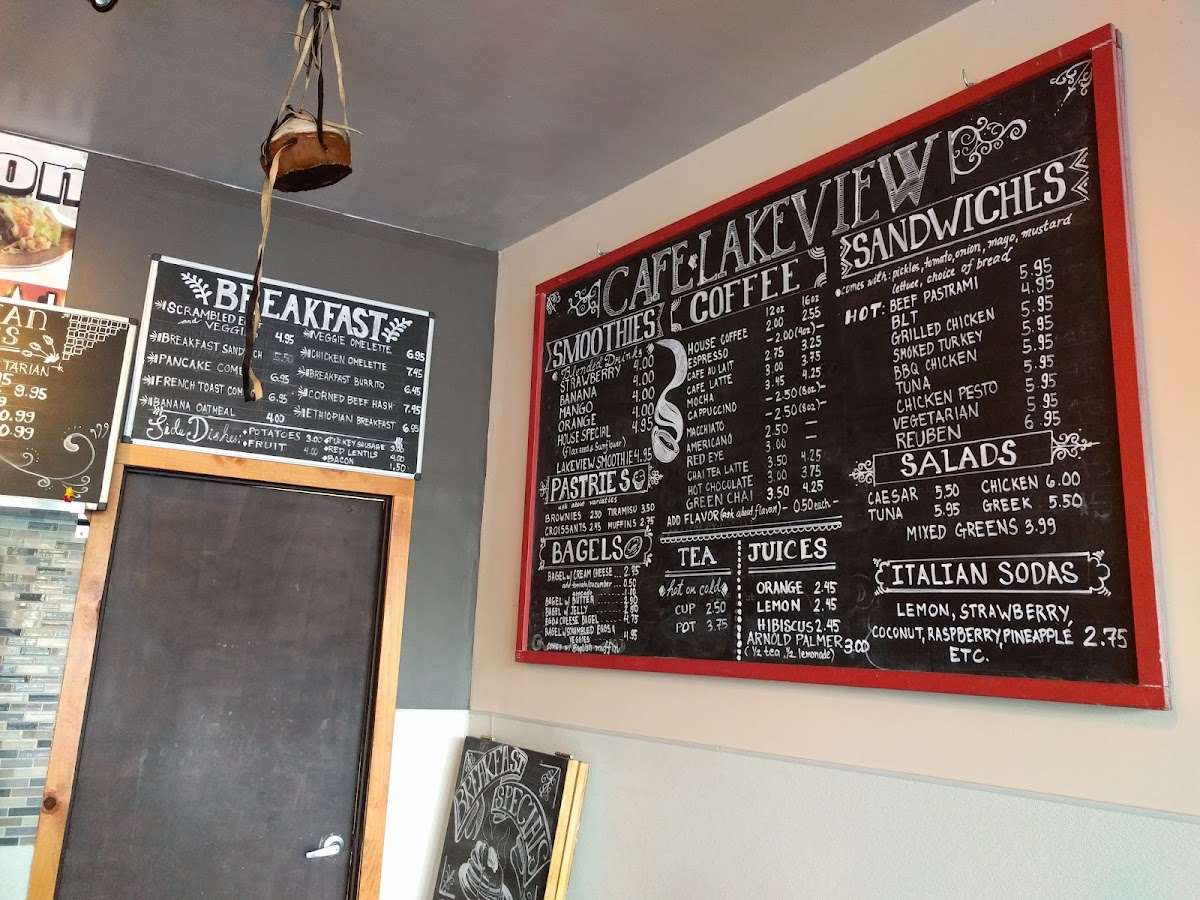 on
AN
S
TARIAN
9.95
BREAKFAST
SCRAMBLED
and VEGGI
4.95
BREAKFAST SAND CH 5.50
PANCAKE COM 6.95
FRENCH TOAST COM 6.95
BANANA OATMEAL 4.00
VEGGIE OMELETTE 6.95
CHICKEN OMELETTE 7.45
BREAKFAST BURRITO 6.45
CORNED BEEF HASH 7.95
ETHIOPIAN BREAKFAST 6.95
Side Dishes:
POTATOES 3.00
FRUIT 4.00
TURKEY SAUSAGE 3.00
RED LENTILS 4.00
BACON 1.50
BREAKFAST
SPECIALS
CAFE LAKEVIEW
SMOOTHIES
Blended Drinks
STRAWBERRY 4.00
BANANA 4.00
MANGO 4.00
ORANGE 4.00
HOUSE SPECIAL 4.95
(flax seed & sunflower)
LAKEVIEW SMOOTHIE 4.95
PASTRIES
ask about varieties
BROWNIES 2.50 TIRAMISU 3.50
CROISSANTS 2.45 MUFFINS 2.75
BAGELS
BAGEL W/ CREAM CHEESE... 2.75
add tomato/cucumber... 0.50
avocado
BAGEL W/ BUTTER
BAGEL W/ JELLY
EGG & CHEESE BAGEL 4.75
BAGEL W/ SCRAMBLED EGGS & VEGGIES 4.95
comes w/ English muffin
COFFEE
12oz 16oz
HOUSE COFFEE 2.00 2.55
ESPRESSO -2.00(4oz)-
CAFE AU LAIT 2.75 3.25
CAFE LATTE 3.00 3.75
MOCHA 3.45 4.25
CAPPUCCINO -2.50(8oz)-
MACCHIATO -2.50(8oz)-
AMERICANO 2.50 —
RED EYE 3.00 —
CHAI TEA LATTE 3.50 4.25
HOT CHOCOLATE 3.00 3.75
GREEN CHAI 3.50 4.25
ADD FLAVOR (ask about flavor) - 0.50 each -
TEA
hot or cold
CUP 2.50
POT 3.75
JUICES
ORANGE 2.45
LEMON 2.45
HIBISCUS 2.45
ARNOLD PALMER 3.00
(½ tea, ½ lemonade)
SANDWICHES
comes with: pickles, tomato, onion, mayo, mustard
lettuce, choice of bread
HOT: BEEF PASTRAMI 5.95
BLT 4.95
GRILLED CHICKEN 5.95
SMOKED TURKEY 5.95
BBQ CHICKEN 5.95
TUNA 5.95
CHICKEN PESTO 5.95
VEGETARIAN 5.95
REUBEN 6.95
SALADS
CAESAR 5.50 CHICKEN 6.00
TUNA 5.95 GREEK 5.50
MIXED GREENS 3.99
ITALIAN SODAS
LEMON, STRAWBERRY,
COCONUT, RASPBERRY, PINEAPPLE 2.75
ETC.